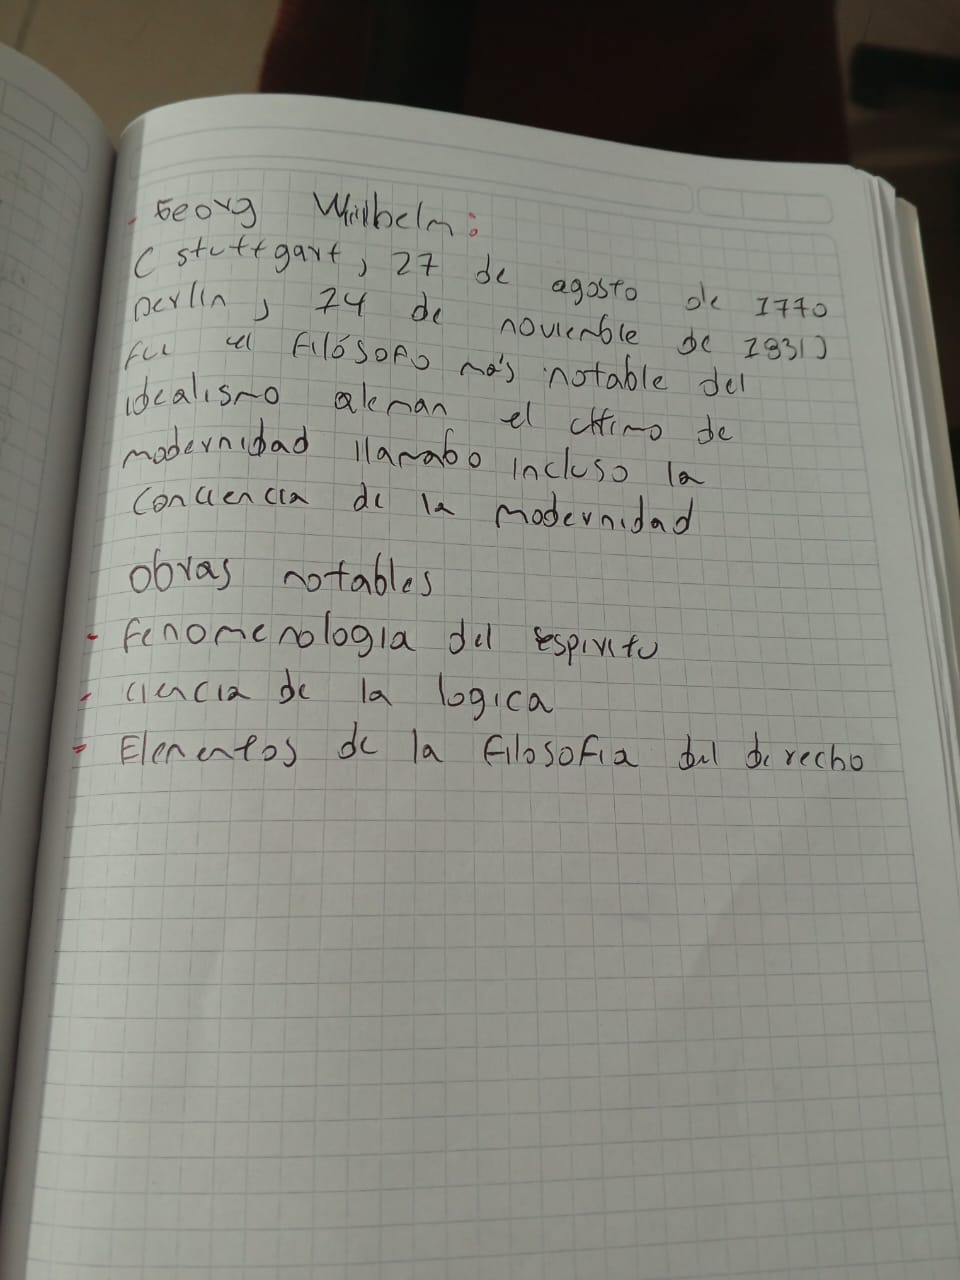 Georg Wilhelm:
( stuttgart, 27 de agosto de 1770
berlin, 14 de noviembre de 1831)
fue el filósofo más notable del
idealismo aleman el ultimo de
modernidad llamado incluso la
conciencia de la modernidad
obras notables
- fenomenologia del espiritu
- ciencia de la logica
- Elementos de la filosofia del derecho